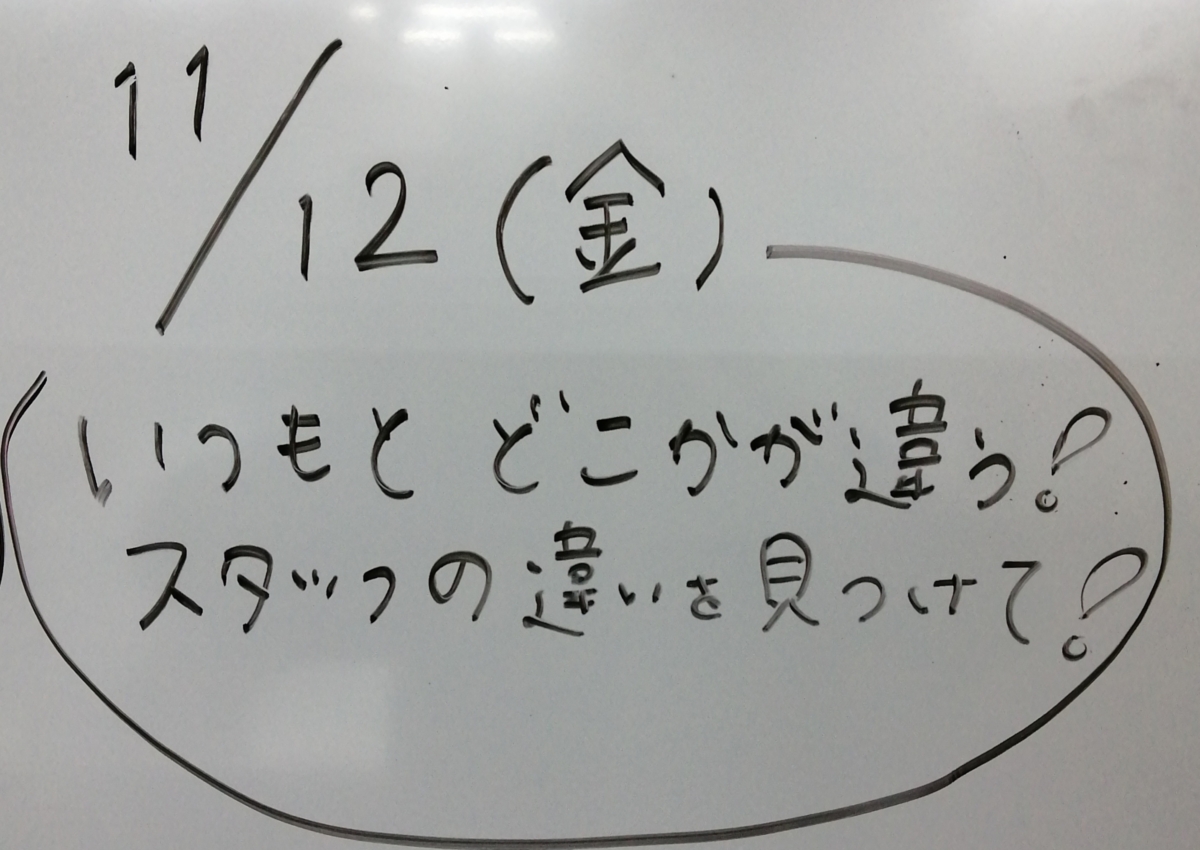 11/12(金)
いつもと どこかが違う?
スタッフの違いを見つけて?